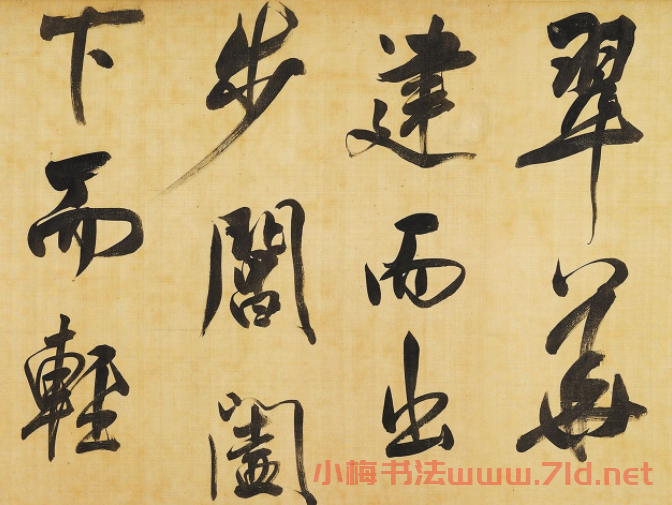 翠華
建而出
步閶闔
下而輕
小梅书法www.7ld.net